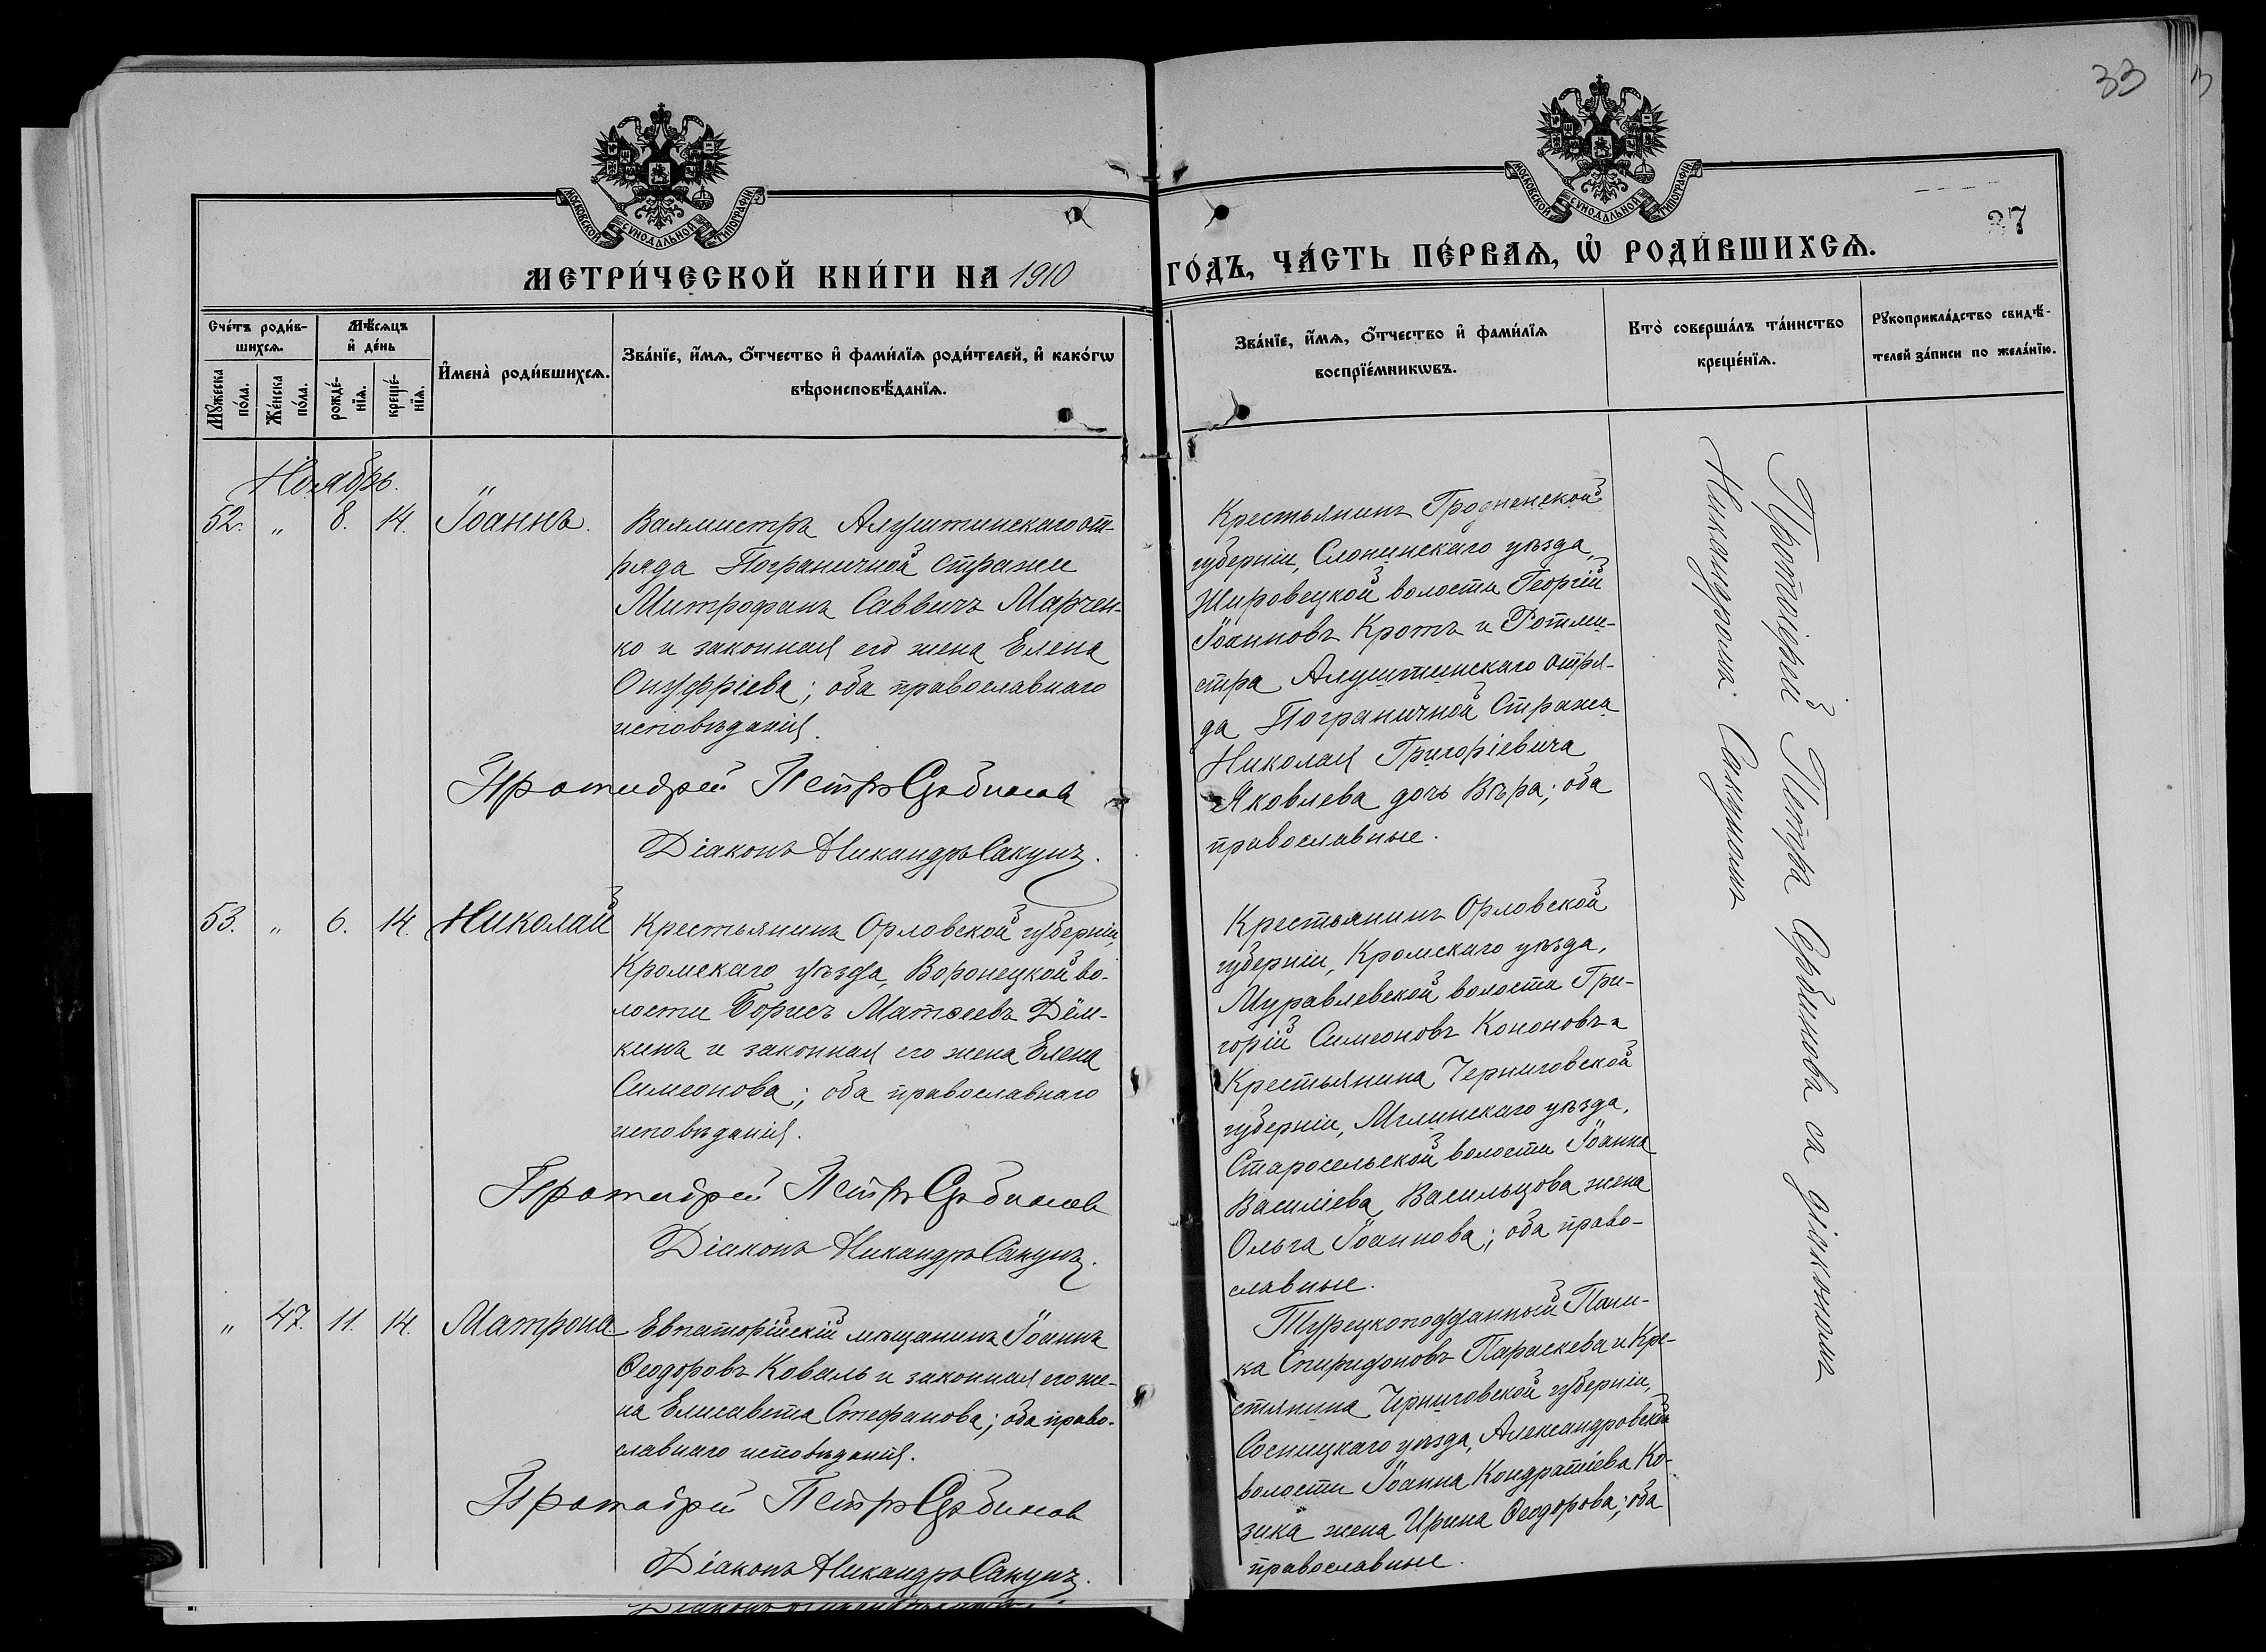 33
МОСКОВСКОЙ СѴНОДАЛЬНОЙ ТИПОГРАФІИ
МОСКОВСКОЙ СѴНОДАЛЬНОЙ ТИПОГРАФІИ
37
МЕТРИ́ЧЕСКОЙ КНИ́ГИ НА 1910
ГО́ДЪ, ЧА́СТЬ ПЕ́РВАѦ, Ѡ҆ РОДИ́ВШИХСѦ.
Сче́тъ роди́в-
шихсѧ.
Мꙋ́жеска по́ла.
Же́нска по́ла.
Мѣ́сѧцъ
и҆ де́нь
рожде́-
нїѧ.
креще́-
нїѧ.
И҆мена̀ роди́вшихсѧ.
Зва́нїе, и҆́мѧ, ѻ҆́тчество и҆ фами́лїѧ роди́телей, и҆ како́гѡ
вѣроисповѣ́данїѧ.
Зва́нїе, и҆́мѧ, ѻ҆́тчество и҆ фами́лїѧ
воспрїе́мникѡвъ.
Кто̀ соверша́лъ та́инство
креще́нїѧ.
Рꙋкоприкла́дство свидѣ́-
телей за́писи по жела́нїю.
Ноябрь.
52. " 8. 14. Іоаннъ.
Вахмистръ Алуштинскаго от-
ряда Пограничной Стражи
Митрофанъ Саввичъ Марчен-
ко и законная его жена Елена
Онуфріева; оба православнаго
исповѣданія.
Протоіерей Петръ Сербиновъ
Діаконъ Никандръ Сакунъ.
Крестьянинъ Гродненской
губерніи, Слонимскаго уѣзда,
Жировецкой волости Георгій
Іоанновъ Кротъ и Ротми-
стра Алуштинскаго Отря-
да Пограничной Стражи
Николая Григоріевича
Яковлева дочь Вѣра; оба
православные.
Протоіерей Петръ Сербиновъ съ діакономъ
Никандромъ Сакуномъ
53. " 6. 14. Николай
Крестьянинъ Орловской губерніи,
Кромскаго уѣзда, Воронецкой во-
лости Борисъ Матѳеевъ Дём-
кинъ и законная его жена Елена
Симеонова; оба православнаго
исповѣданія.
Протоіерей Петръ Сербиновъ
Діаконъ Никандръ Сакунъ.
Крестьянинъ Орловской
губерніи, Кромскаго уѣзда,
Муравлевской волости Гри-
горій Симеоновъ Кононовъ и
Крестьянина Черниговской
губерніи, Мглинскаго уѣзда,
Старосельской волости Іоанна
Василіева Васильцова жена
Ольга Іоаннова; оба право-
славные.
" 47. 11. 14. Матрона
Евпаторійскій мѣщанинъ Іоаннъ
Ѳеодоровъ Коваль и законная его же-
на Елисавета Стефанова; оба право-
славнаго исповѣданія.
Протоіерей Петръ Сербиновъ
Діаконъ Никандръ Сакунъ.
Турецкоподданный Пани-
ка Спиридоновъ Параскева и Кре-
стянина Черниговской губерніи,
Сосницкаго уѣзда, Александровской
волости Іоанна Кондратіева Ко-
зика жена Ирина Ѳеодорова; оба
православные.